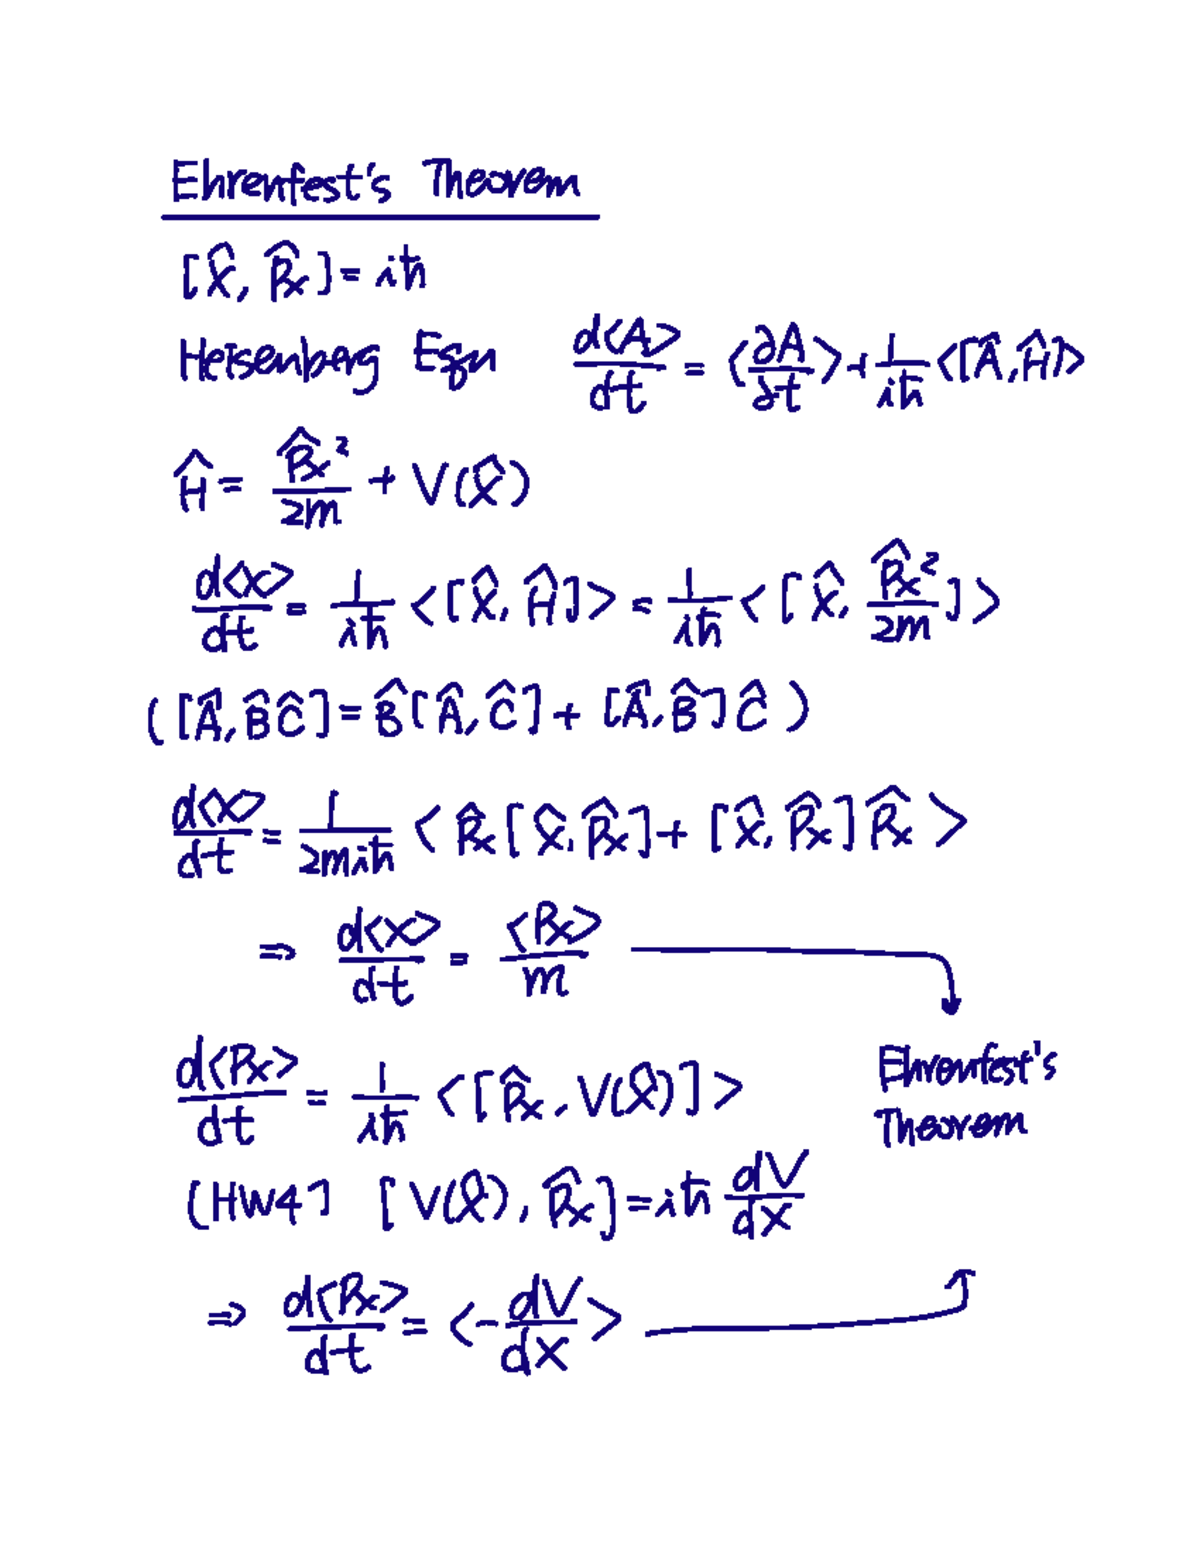 Ehrenfest's Theorem
[x̂, p̂ₓ] = iħ
Heisenberg Eqn d<A>/dt = <∂A/∂t> + 1/iħ <[Â, Ĥ]>
Ĥ = p̂ₓ²/2m + V(x̂)
d<x>/dt = 1/iħ <[x̂, Ĥ]> = 1/iħ <[x̂, p̂ₓ²/2m]>
([Â, B̂Ĉ] = B̂[Â, Ĉ] + [Â, B̂]Ĉ)
d<x>/dt = 1/2miħ <p̂ₓ[x̂, p̂ₓ] + [x̂, p̂ₓ]p̂ₓ>
⇒ d<x>/dt = <pₓ>/m
d<pₓ>/dt = 1/iħ <[p̂ₓ, V(x̂)]>
Ehrenfest's
Theorem
(HW4] [V(x̂), p̂ₓ] = iħ dV/dx
⇒ d<pₓ>/dt = <-dV/dx>